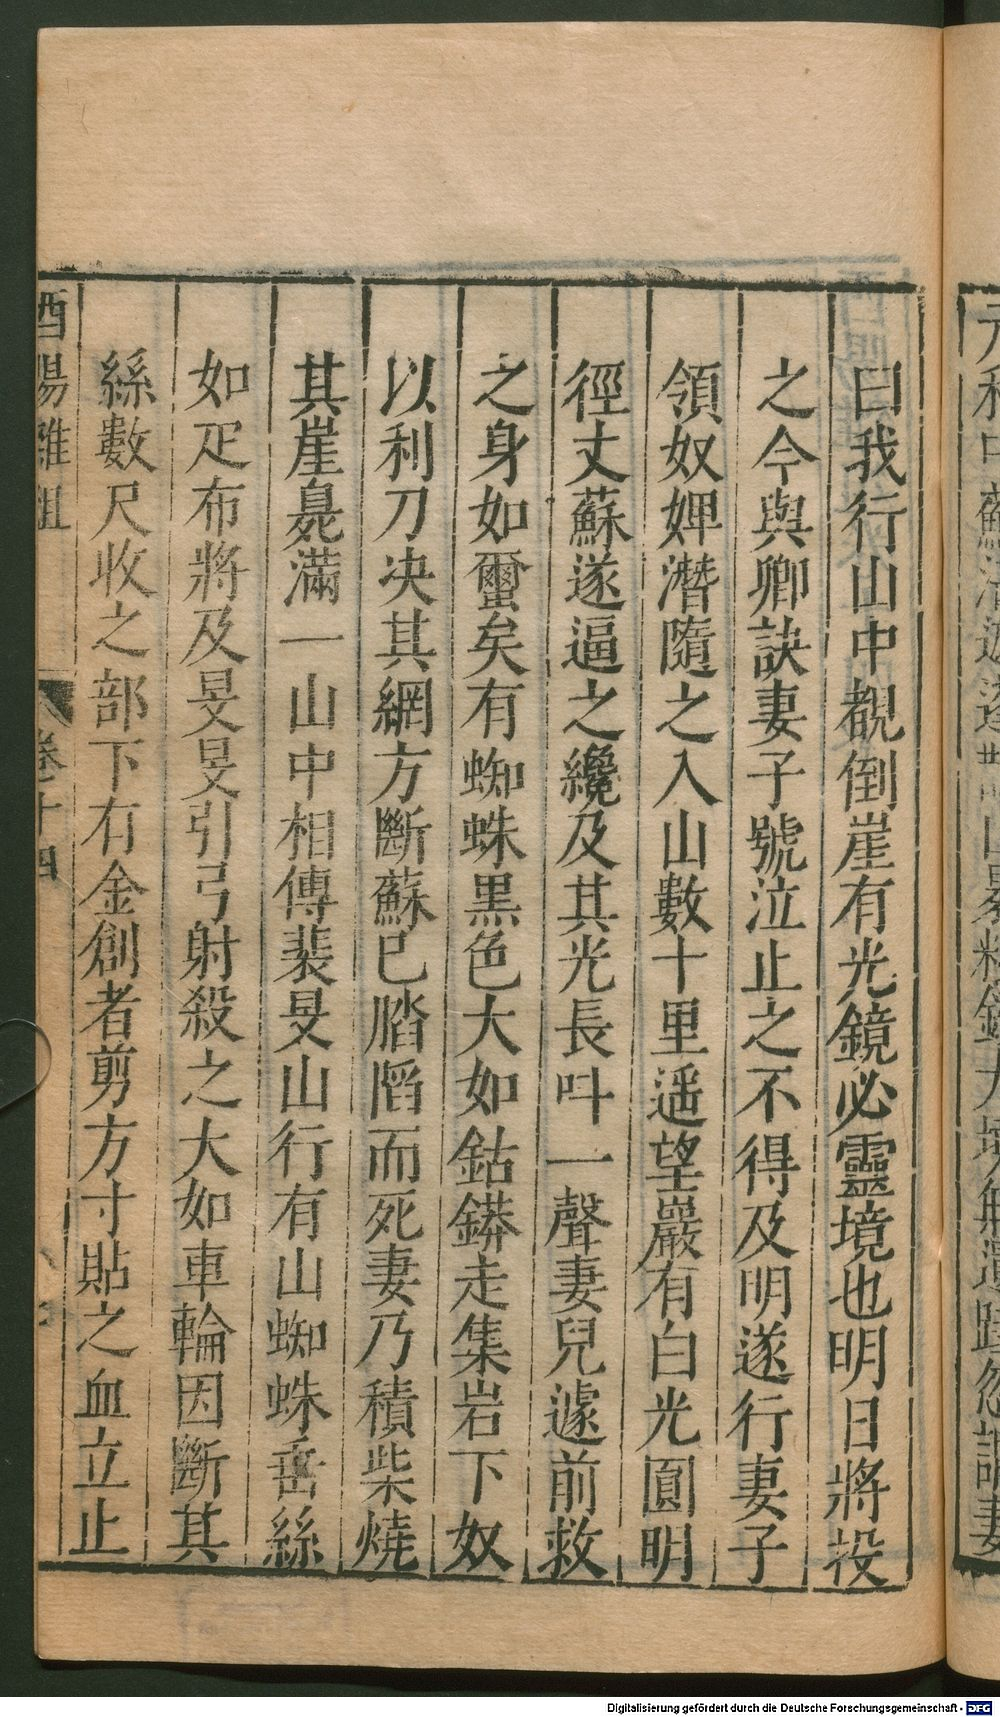 曰我行山中覩倒崖有光鏡必靈境也明日將投
之今與卿訣妻子號泣止之不得及明遂行妻子
領奴婢潛隨之入山數十里遥望巖有白光圓明
徑丈蘇遂逼之纔及其光長呌一聲妻兒遽前救
之身如蠒矣有蜘蛛黒色大如鈷鏻走集岩下奴
以利刀决其網方斷蘇巳腦䧟而死妻乃積柴燒
其崖臰滿一山中相傳裴旻山行有山蜘蛛垂絲
如疋布將及旻旻引弓射殺之大如車輪因斷其
絲數尺收之部下有金創者剪方寸貼之血立止
酉陽雜俎
卷十四
Digitalisierung gefördert durch die Deutsche Forschungsgemeinschaft - DFG